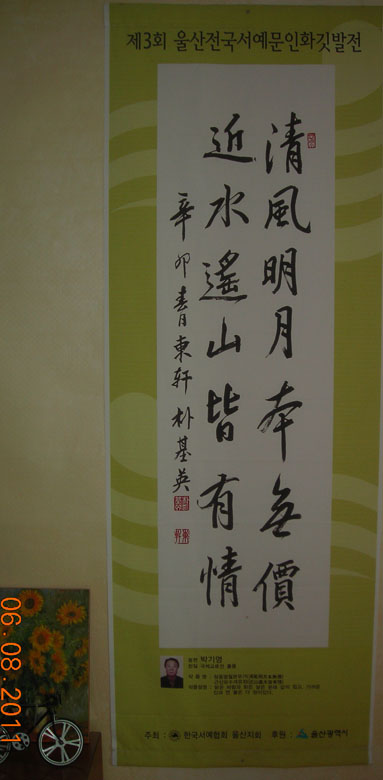 제3회 울산전국서예문인화깃발전
清風明月本無價
近水遙山皆有情
辛卯春日東軒朴基英
박기영
주최 : 한국서예협회 울산지회 후원 : 울산광역시
06.08.2011